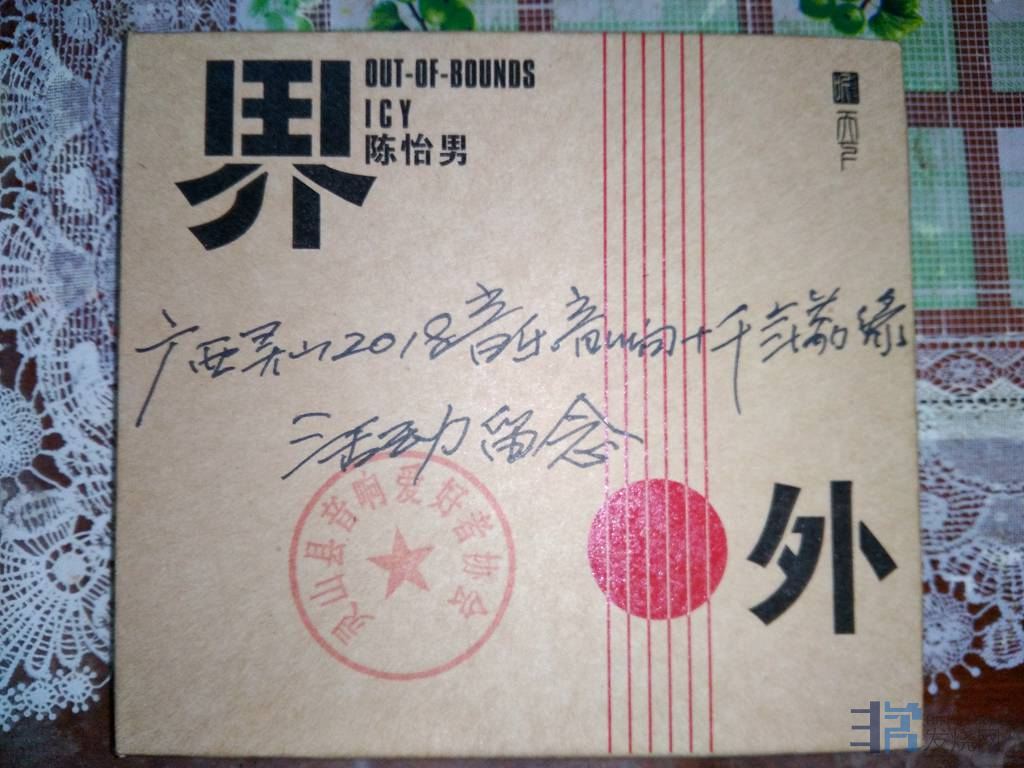 界
OUT-OF-BOUNDS
ICY
陈怡男
听
天下
广西灵山2018音乐音响十千
活动留念
灵山县音响爱好者协会
外
非常
发烧网